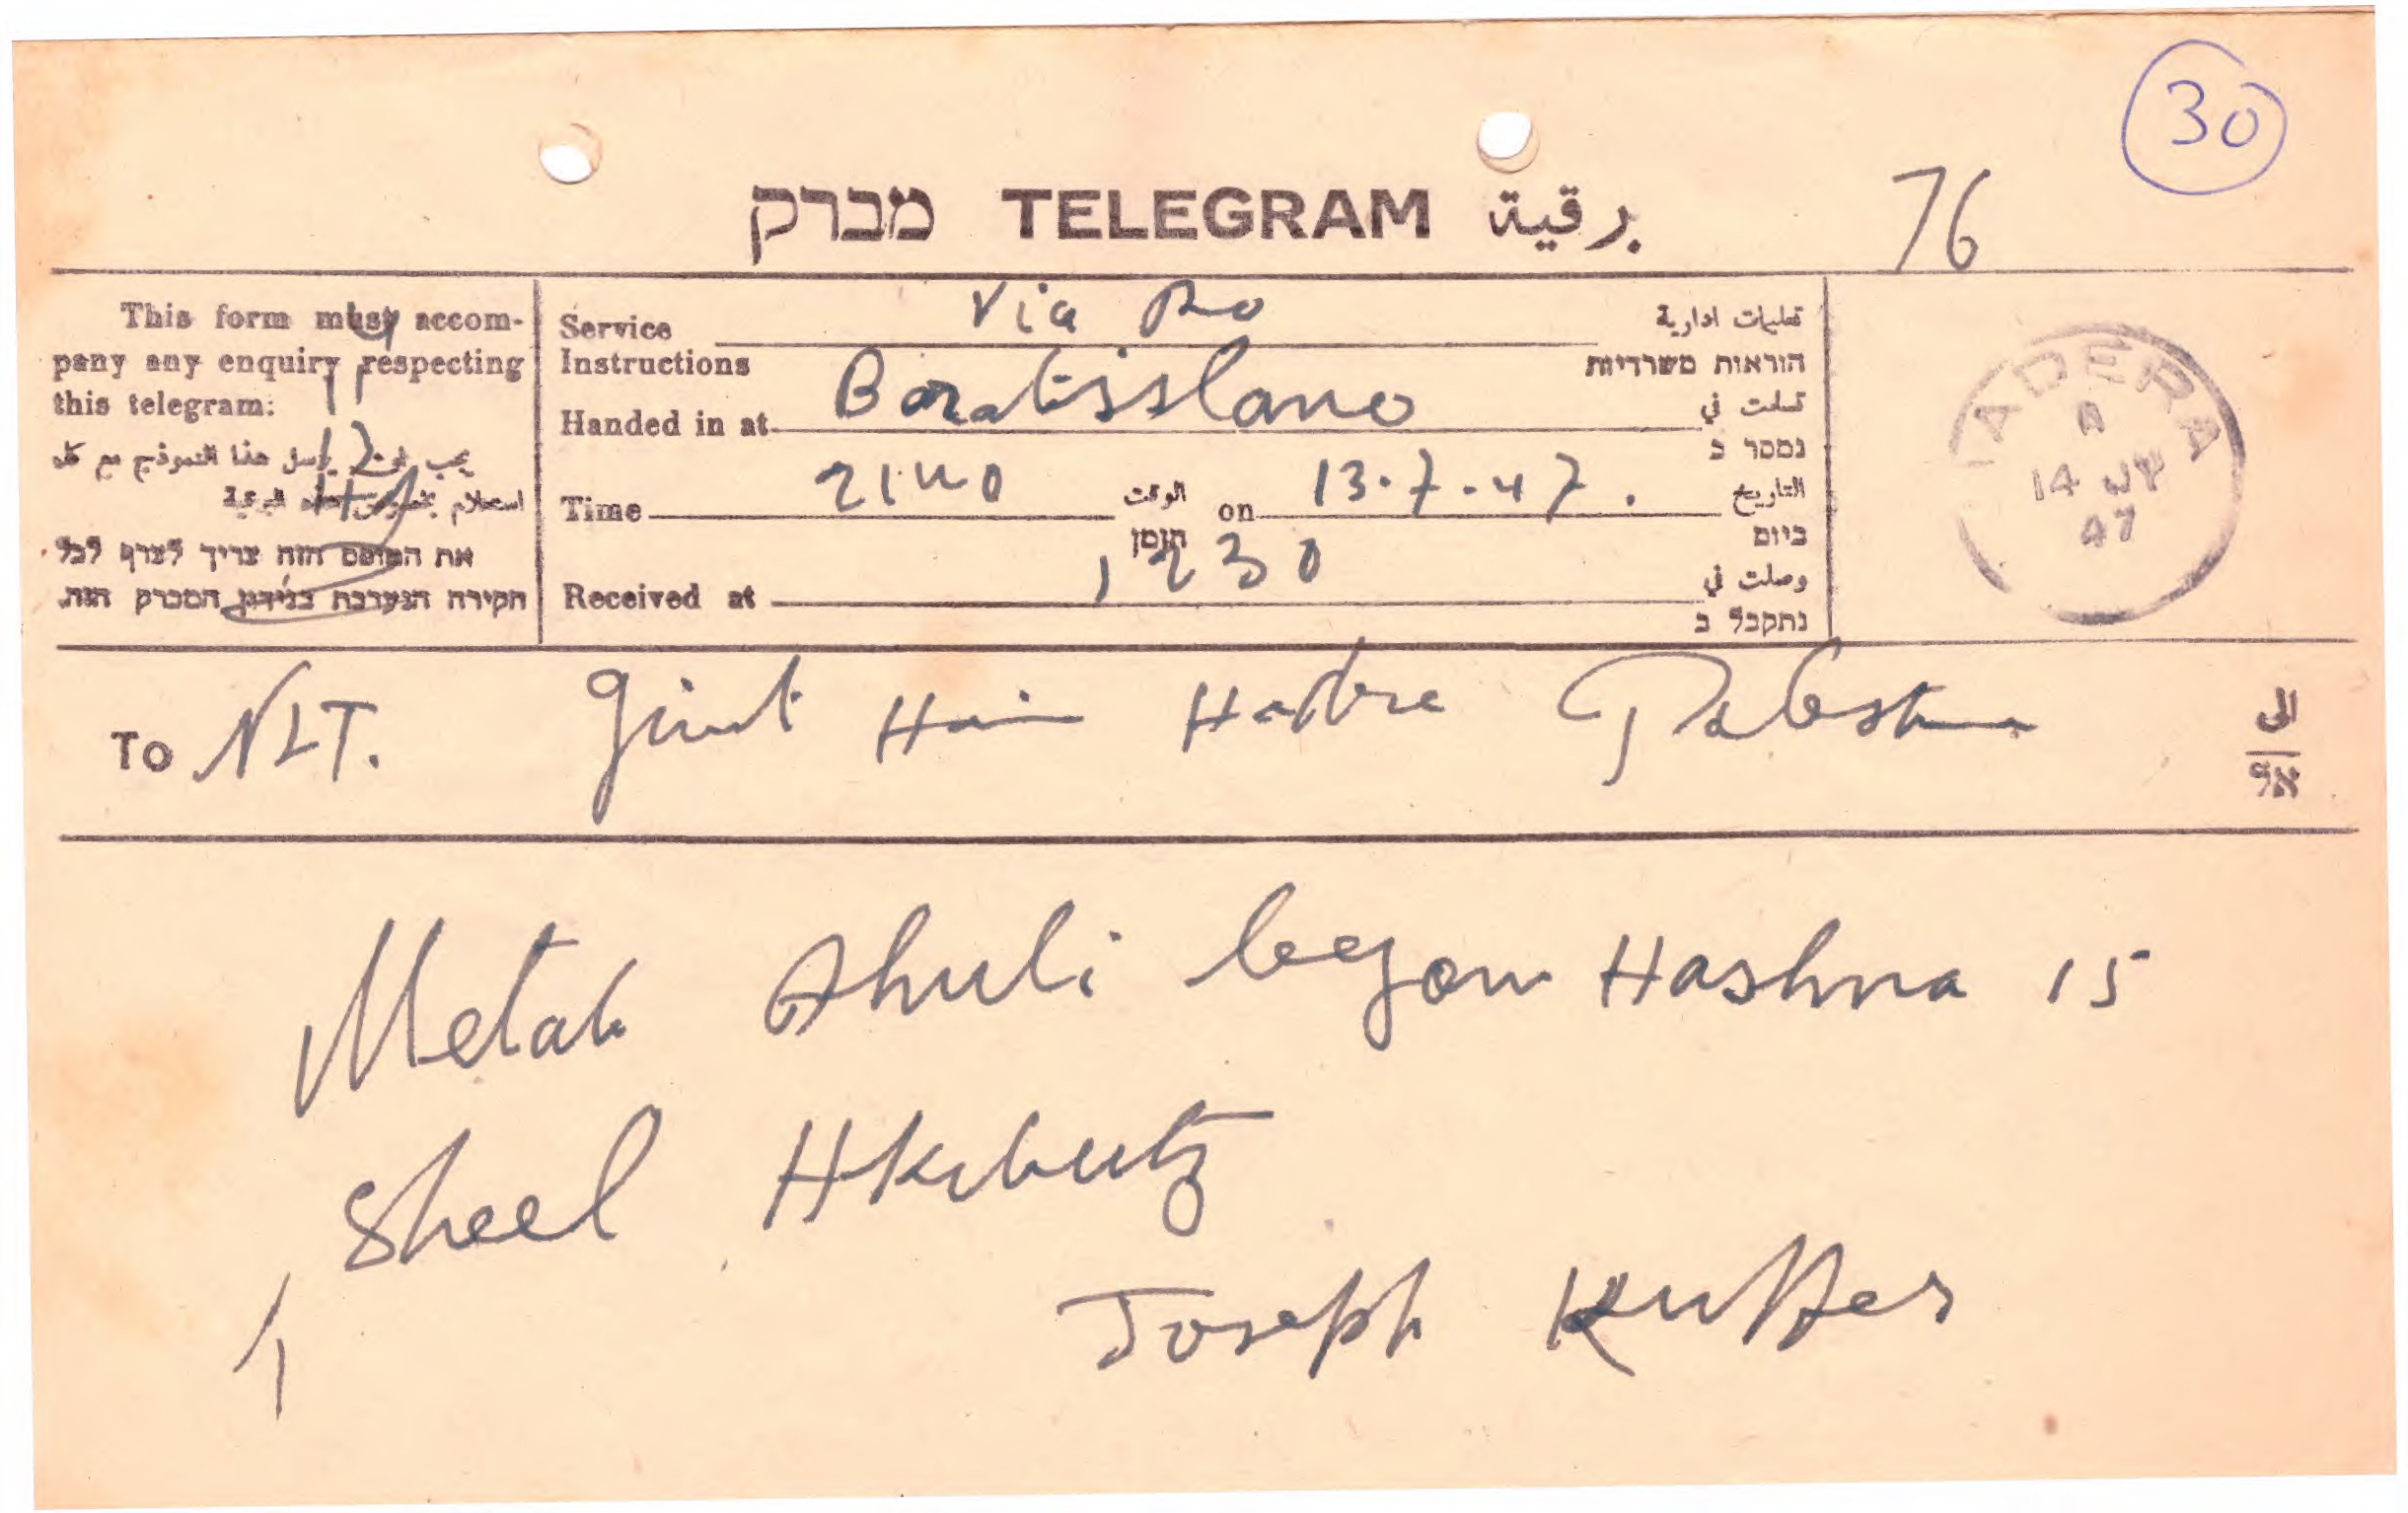 30
מברק TELEGRAM برقية
76
This form must accom-
pany any enquiry respecting
this telegram:
يجب ان يرسل هذا النموذج مع كل
استعلام بخصوص هذه البرقية
את הטופס הזה צריך לצרף לכל
חקירה הנערכת בנידון המברק הזה.
Service Via تعليمات ادارية
Instructions הוראות משרדיות
Handed in at Baratisslano تسلمت في
נמסר ב
Time 2140 الوقت on 13.7.47. التاريخ
הזמן ביום
Received at 1230 وصلت في
נתקבל ב
HADERA
14 JY
47
To NLT. Hadre Palestina الى
אל
Metak Ahuli begom Hashna 15
Sheel Hkibutz
Joseph